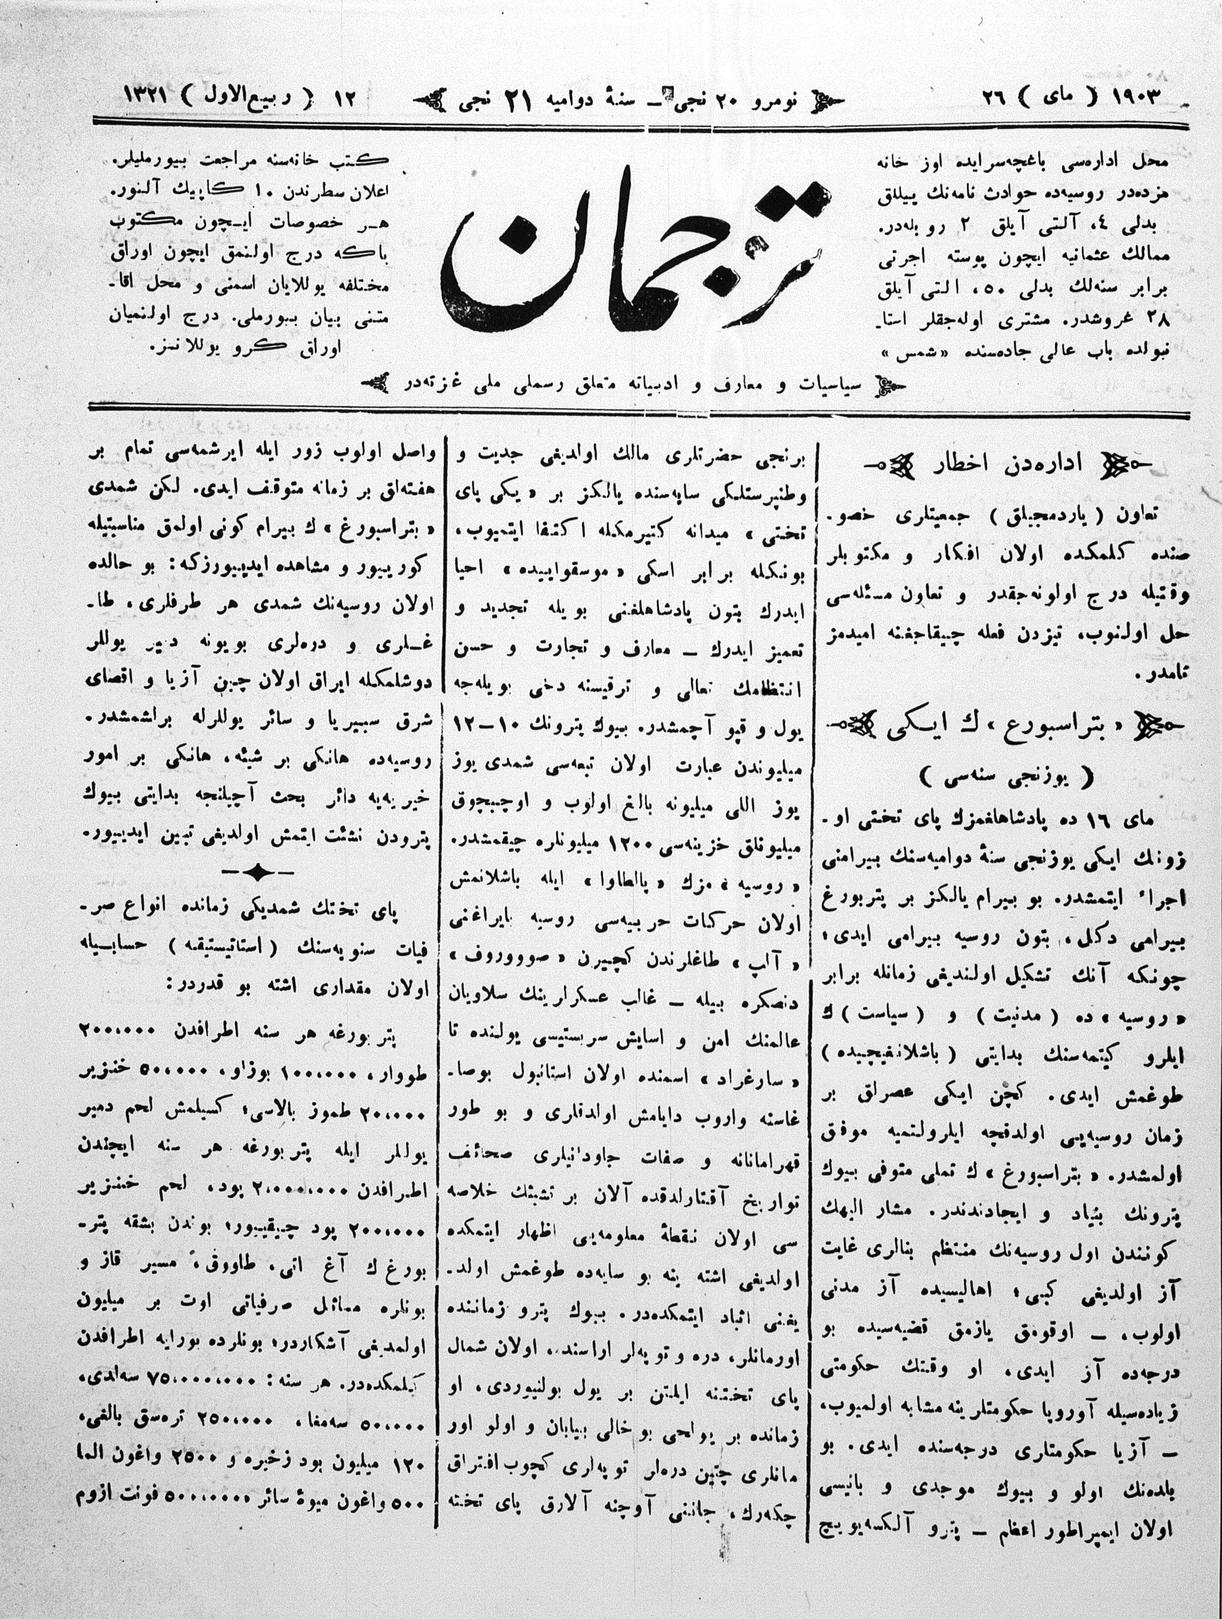 ١٩٠٣ ( مای ) ٢٦
نومرو ٢٠ نجی — سنهٔ دوامیه ٢١ نجی
١٢ ( ربیع‌الاول ) ١٣٢١
محل اداره‌سی باغچه‌سرایده اوز خانه
مزده‌در روسیه‌ده حوادث نامه‌نك ییللق
بدلی ٤، آلتی آیلق ٢ روبله‌در.
ممالك عثمانیه ایچون پوسته اجرتی
برابر سنه‌لك بدلی ٥٠، التی آیلق
٢٨ غروشدر. مشتری اوله‌جقلر استا‍ـ
نبولده باب عالی جاده‌سنده «شمس»
ترجمان
كتب خانه‌سنه مراجعت بیورملیلر.
اعلان سطرندن ١٠ كاپیك آلنور.
هر خصوصات ایچون مكتوب
باكه درج اولنمق ایچون اوراق
مختلفه یوللایان اسمنی و محل اقا‍ـ
متنی بیان بیورملی. درج اولنمیان
اوراق كرو یوللانمز.
سیاسیات و معارف و ادبیاته متعلق رسملی ملی غزته‌در
اداره‌دن اخطار
تعاون ( یاردمجیلق ) جمعیتلری خصو‍ـ
صنده كلمكده اولان افكار و مكتوبلر
وقتیله درج اولونه‌جقدر و تعاون مسئله‌سی
حل اولنوب، تیزدن فعله چیقاجغنه امیدمز
تامدر.
« پتراسبورغ » ك ایكی
( یوزنجی سنه‌سی )
مای ١٦ ده پادشاهلغمزك پای تختی او‍ـ
زونك ایكی یوزنجی سنهٔ دوامیه‌سنك بیرامنی
اجراء ایتمشدر. بو بیرام یالكز بر پتربورغ
بیرامی دكل، بتون روسیه بیرامی ایدی؛
چونكه آنك تشكیل اولندیغی زمانله برابر
« روسیه » ده ( مدنیت ) و ( سیاست ) ك
ایلرو كیتمه‌سنك بدایتی ( باشلانغیچیده )
طوغمش ایدی. كچن ایكی عصرلق بر
زمان روسیه‌یی اولدقچه ایلرولتمیه موفق
اولمشدر. « پتراسبورغ » ك تملی متوفی بیوك
پترونك بنیاد و ایجادندندر. مشار الیهك
كونندن اول روسیه‌نك منتظم بنالری غایت
آز اولدیغی كبی؛ اهالیسیده آز مدنی
اولوب، — اوقومق یازمق قضیه‌سیده بو
درجه‌ده آز ایدی، او وقتك حكومتی
زیاده‌سیله آوروپا حكومتلرینه مشابه اولمیوب،
— آزیا حكومتلری درجه‌سنده ایدی. بو
بلده‌نك اولو و بیوك موجدی و بانیسی
اولان ایمپراطور اعظم — پترو آلكسه‌یویچ
برنجی حضرتلری مالك اولدیغی جدیت و
وطنپرستلكی سایه‌سنده یالكز بر « یكی پای
تختی » میدانه كتیرمكله اكتفا ایتمیوب،
بونكله برابر اسكی « موسقوا»ییده احیا
ایدرك بتون پادشاهلغنی بویله تجدید و
تعمیز ایدرك — معارف و تجارت و حسن
انتظامك تعالی و ترقیسنه دخی بویله‌جه
یول و قپو آچمشدر. بیوك پترونك ١٠—١٢
میلیوندن عبارت اولان تبعه‌سی شمدی یوز
یوز اللی میلیونه بالغ اولوب و اوچبچوق
میلیونلق خزینه‌سی ١٢٠٠ میلیونلره چیقمشدر.
« روسیه » مزك « پالطاوا » ایله باشلانمش
اولان حركات حربیه‌سی روسیه بایراغنی
« آلپ » طاغلرندن كچیرن « صووروف »
دنصكره بیله — غالب عسكرلرینك سلاویان
عالمنك امن و اسایش سربستیسی یولنده تا
« سارغراد » اسمنده اولان استانبول بوصا‍ـ
غاسنه واروب دایامش اولدقلری و بو طور
قهرامانانه و صفات جاودانیلری صحائف
تواریخ آقتارلدقده آلان بر تشبثك خلاصه
سی اولان نقطهٔ معلومه‌یی اظهار ایتمكده
اولدیغی اشته ینه بو سایه‌ده طوغمش اولد‍ـ
یغنی اثبات ایتمكده‌در. بیوك پترو زماننده
اورمانلر، دره و تپه‌لر اراسنده اولان شمال
پای تختنه ایلتن بر یول بولنیوردی، او
زمانده بر یولجی بو خالی بیابان و اولو اور
مانلری چتین دره‌لر توپه‌لری كچوب افتراق
چكه‌رك، جاننی آوچنه آلارق پای تخته
واصل اولوب زور ایله ایرشمه‌سی تمام بر
هفته‌لق بر زمانه متوقف ایدی. لكن شمدی
« پتراسبورغ » ك بیرام كونی اولمق مناسبتیله
كوریبور و مشاهده ایدییورزكه: بو حالده
اولان روسیه‌نك شمدی هر طرفلری، طا‍ـ
غلری و دره‌لری بویونه دمیر یوللر
دوشلمكله ایراق اولان چین آزیا و اقصای
شرق سیبیریا و سائر یوللرله براشمشدر.
روسیه‌ده هانكی بر شیئه، هانكی بر امور
خیریه‌یه دائر بحث آچیلنجه بدایتی بیوك
پترودن نشئت ایتمش اولدیغی تبین ایدییور.
پای تختك شمدیكی زمانده انواع صر‍ـ
فیات سنویه‌سنك ( استاتیستیقه ) حسابیله
اولان مقداری اشته بو قدردر:
پتربورغه هر سنه اطرافدن ٢٠٠،٠٠٠
طووار، ١٠٠،٠٠٠ بوزاو، ٥٠،٠٠٠ خنزیر
٢٠،٠٠٠ طموز بالاسی؛ كسیلمش لحم دمیر
یوللر ایله پتربورغه هر سنه ایچندن
اطرافدن ٢،٠٠٠،٠٠٠ پود، لحم خنزیر
٢٠٠،٠٠٠ پود چیقیبور؛ بوندن بشقه پتر‍ـ
بورغ ك آغ اتی، طاووق، مسیر قاز و
بونلره مماثل صرفیاتی اوت بر میلیون
اولمدیغی آشكاردر؛ بونلرده بورایه اطرافدن
كیلمكده‌در. هر سنه: ٧٥،٠٠٠،٠٠٠ سه‌لدی،
٥٠،٠٠٠ سه‌مغا، ٢٥٠،٠٠٠ تره‌سق بالغی،
١٢٠ میلیون پود زخیره و ٢٥٠٠ واغون الما
٥٠٠ واغون میوهٔ سائر ٥٠٠،٠٠٠ فونت ازوم